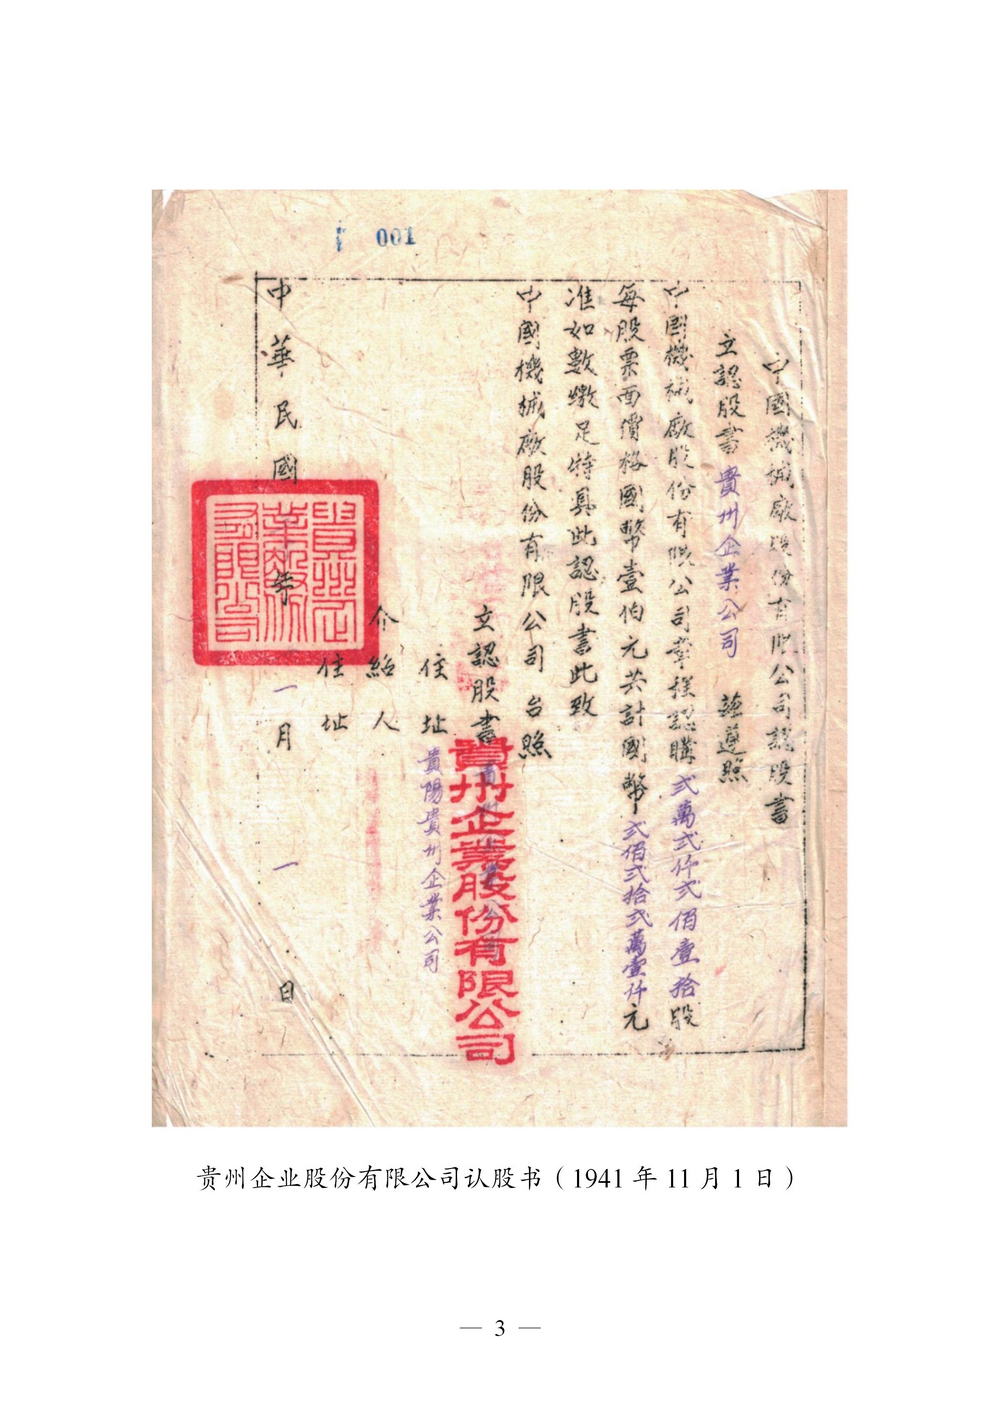 001
中國機械廠股份有限公司認股書
立認股書貴州企業公司 茲遵照
中國機械廠股份有限公司章程認購貳萬貳仟貳佰壹拾股
每股票面價格國幣壹伯元共計國幣貳佰貳拾貳萬壹仟元
准如數繳足特具此認股書此致
中國機械廠股份有限公司 台照
立認股書
貴州企業股份有限公司
住址 貴陽貴州企業公司
介紹人
住址
中華民國 年 一月 一 日
貴州企業股份有限公司
贵州企业股份有限公司认股书（1941 年 11 月 1 日）
— 3 —